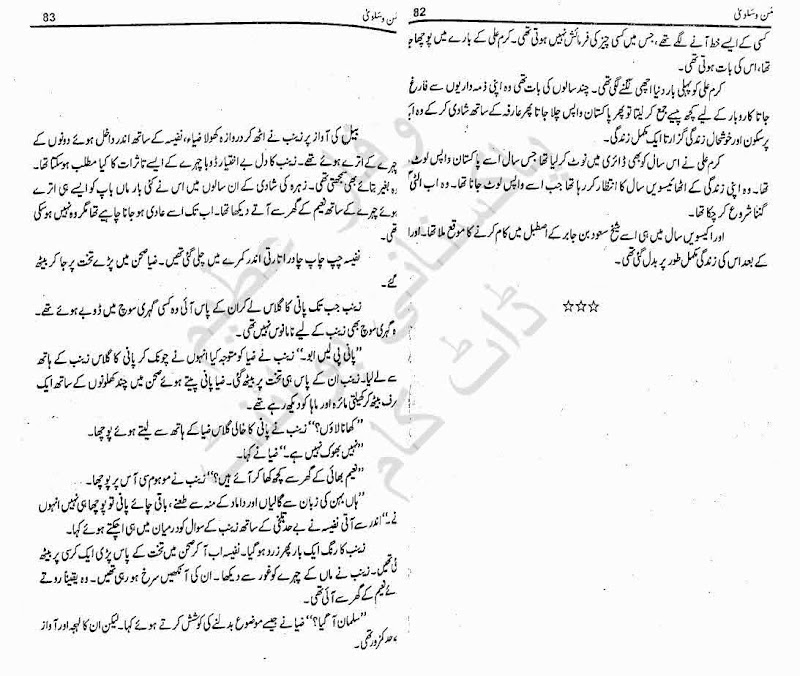 82 مَن و سلویٰ
کسی کے ایسے خط آنے لگے تھے، جس میں کسی چیز کی فرمائش نہیں ہوتی تھی۔ کرم علی کے بارے میں پوچھا جا
تھا، اس کی بات ہوتی تھی۔
کرم علی کو پہلی بار دنیا اچھی لگنے لگی تھی۔ چند سالوں کی بات تھی وہ اپنی ذمہ داریوں سے فارغ
جاتا کاروبار کے لیے کچھ پیسے جمع کر لیتا تو پھر پاکستان واپس چلا جاتا پھر عارفہ کے ساتھ شادی کر کے وہ ای
پرسکون اور خوشحال زندگی گزارتا ایک مکمل زندگی۔
کرم علی نے اس سال کو بھی ڈائری میں نوٹ کر لیا تھا جس سال اسے پاکستان واپس لوٹ
تھا۔ وہ اپنی زندگی کے اٹھائیسویں سال کا انتظار کر رہا تھا جب اسے واپس لوٹ جانا تھا۔ وہ اب الٹی
گننا شروع کر چکا تھا۔
اور اکیسویں سال میں ہی اسے شیخ سعود بن جابر کے اصطبل میں کام کرنے کا موقع ملا تھا۔ اور ا
کے بعد اس کی زندگی مکمل طور پر بدل گئی تھی۔
☆☆☆
83 مَن و سلویٰ
بیل کی آواز پر زینب نے اٹھ کر دروازہ کھولا ضیاء، نفیسہ کے ساتھ اندر داخل ہوئے دونوں کے
چہرے کے اترے ہوئے تھے۔ زینب کا دل بے اختیار ڈوبا چہرے کے ایسے تاثرات کا کیا مطلب ہو سکتا تھا۔
وہ بغیر بتائے بھی سمجھتی تھی۔ زہرہ کی شادی کے ان سالوں میں اس نے کئی بار ماں باپ کو ایسے ہی اترے
ہوئے چہرے کے ساتھ نعیم کے گھر سے آتے دیکھا تھا۔ اب تک اسے عادی ہو جانا چاہیے تھا مگر وہ نہیں ہو سکی
تھی۔
نفیسہ چپ چاپ چادر اتارتی اندر کمرے میں چلی گئی تھیں۔ ضیا صحن میں پڑے تخت پر جا کر بیٹھ
گئے۔
زینب جب تک پانی کا گلاس لے کر ان کے پاس آئی وہ کسی گہری سوچ میں ڈوبے ہوئے تھے۔
ہ گہری سوچ بھی زینب کے لیے نامانوس نہیں تھی۔
”پانی پی لیں ابو۔“ زینب نے ضیا کو متوجہ کیا انہوں نے چونک کر پانی کا گلاس زینب کے ہاتھ
سے لے لیا۔ زینب ان کے پاس ہی تخت پر بیٹھ گئی۔ ضیا پانی پیتے ہوئے صحن میں چند کھلونوں کے ساتھ ایک
رف بیٹھ کر کھیلتی مائرہ اور ماہا کو دیکھ رہے تھے۔
”کھانا لاؤں؟“ زینب نے پانی کا خالی گلاس ضیا کے ہاتھ سے لیتے ہوئے پوچھا۔
”نہیں بھوک نہیں ہے۔“ ضیا نے کہا۔
”نعیم بھائی کے گھر سے کچھ کھا کر آئے ہیں؟“ زینب نے موہوم سی آس پر پوچھا۔
”ہاں بہن کی زبان سے گالیاں اور داماد کے منہ سے طعنے، باقی چائے پانی تو پوچھا ہی نہیں انہوں
نے۔“ اندر سے آتی نفیسہ نے بے حد تلخی کے ساتھ زینب کے سوال کو درمیان میں ہی اچکتے ہوئے کہا۔
زینب کا رنگ ایک بار پھر زرد ہو گیا۔ نفیسہ اب آ کر صحن میں تخت کے پاس پڑی ایک کرسی پر بیٹھ
ئی تھیں۔ زینب نے ماں کے چہرے کو غور سے دیکھا۔ ان کی آنکھیں سرخ ہو رہی تھیں۔ وہ یقیناً روتے
ئے نعیم کے گھر سے آئی تھی۔
”سلمان آ گیا؟“ ضیا نے جیسے موضوع بدلنے کی کوشش کرتے ہوئے کہا۔ لیکن ان کا لہجہ اور آواز
ے حد کمزور تھی۔
پاکستانی پوائنٹ
ڈاٹ کام